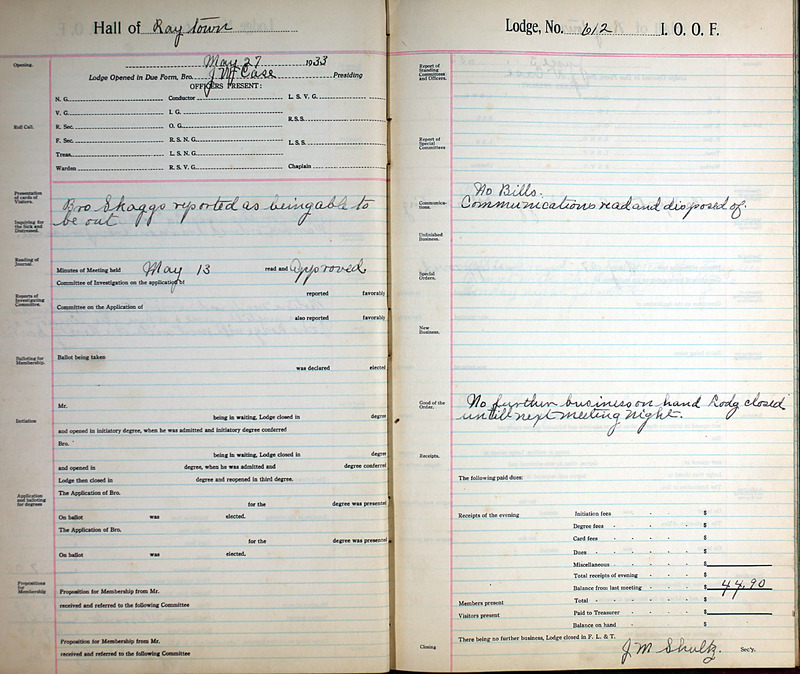 Hall of Raytown
Opening.
May 27 1933
Lodge Opened in Due Form, Bro. J M Case Presiding
OFFICERS PRESENT:
Roll Call.
N. G. Conductor L. S. V. G.
V. G. I. G.
R. Sec. O. G. R.S.S.
F. Sec. R. S. N. G. L.S.S.
Treas. L. S. N. G.
Warden R. S. V. G. Chaplain
Presentation of cards of Visitors.
Inquiring for the Sick and Distressed.
Bro Skaggs reported as being able to
be out
Reading of Journal.
Minutes of Meeting held May 13 read and Approved
Committee of Investigation on the application of
reported favorably
Reports of Investigating Committee.
Committee on the Application of
also reported favorably
Balloting for Membership.
Ballot being taken
was declared elected
Mr.
Initiation
being in waiting, Lodge closed in degree
and opened in initiatory degree, when he was admitted and initiatory degree conferred
Bro.
being in waiting, Lodge closed in degree
and opened in degree, when he was admitted and degree conferred
Lodge then closed in degree and reopened in third degree.
Application and balloting for degrees
The Application of Bro.
for the degree was presented
On ballot was elected.
The Application of Bro.
for the degree was presented
On ballot was elected.
Propositions for Membership
Proposition for Membership from Mr.
received and referred to the following Committee
Proposition for Membership from Mr.
received and referred to the following Committee
Lodge, No. 612 I. O. O. F.
Report of Standing Committees and Officers.
Report of Special Committees
No Bills.
Communications.
Communications read and disposed of
Unfinished Business.
Special Orders.
New Business.
Good of the Order.
No further business on hand Lodg closed
untill next meeting night.
Receipts.
The following paid dues:
Receipts of the evening Initiation fees $
Degree fees $
Card fees $
Dues $
Miscellaneous $
Total receipts of evening $
Balance from last meeting $ 44.90
Members present Total $
Visitors present Paid to Treasurer $
Balance on hand $
There being no further business, Lodge closed in F. L. & T.
Closing J M Shultz. Sec'y.